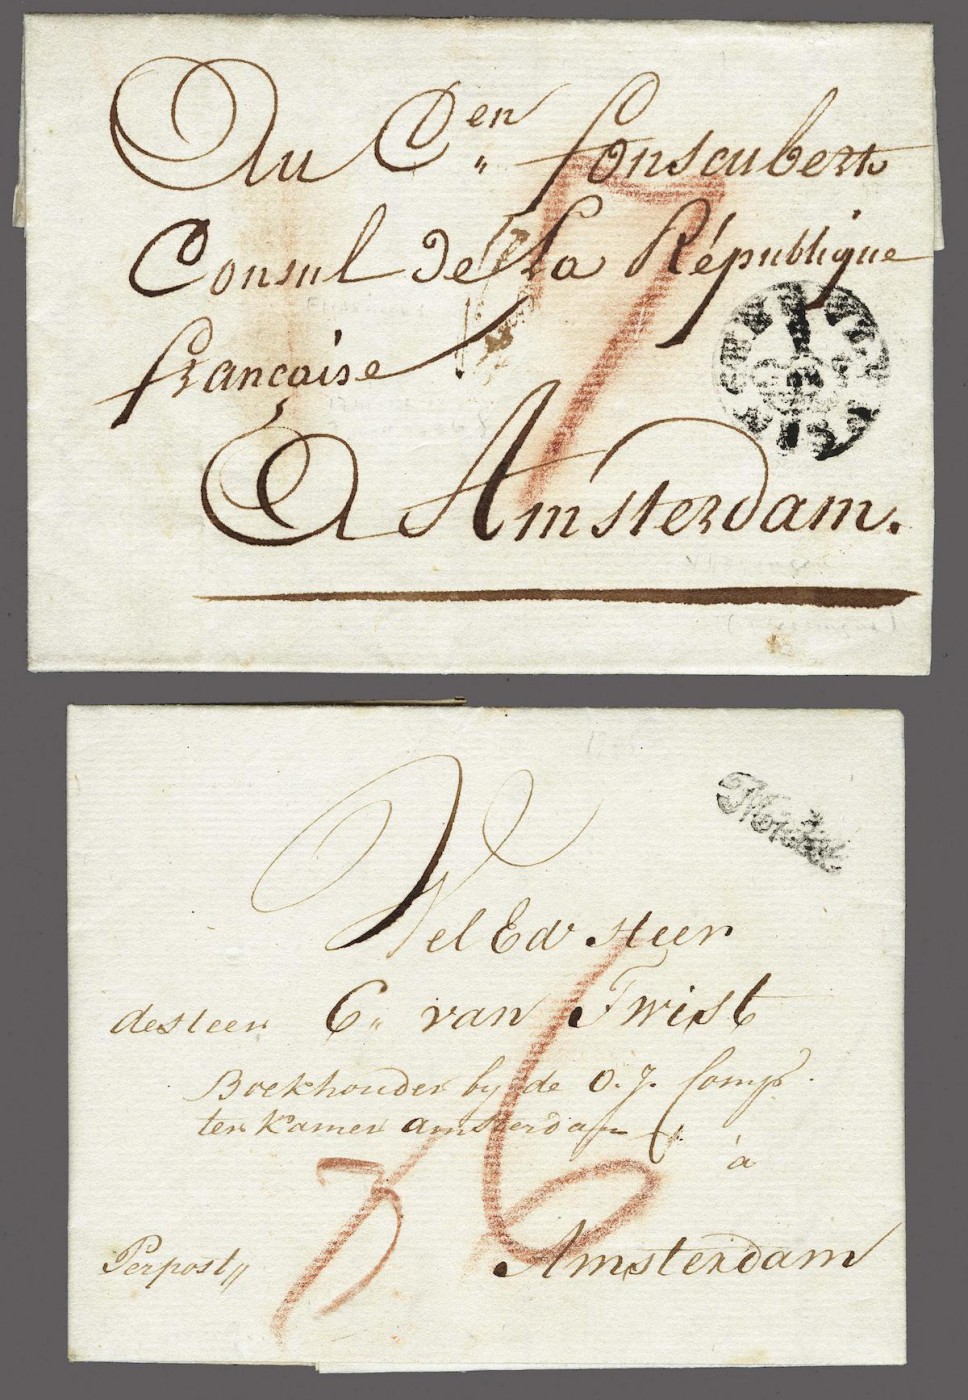 Au C.en fonscubert
Consul de la République
française
A Amsterdam.
7
Wel Ed Heer
de Heer C. van Twist
Boekhouder by de O. J. Comp.
ter Kamer Amsterdam
à
Perpost
Amsterdam
6